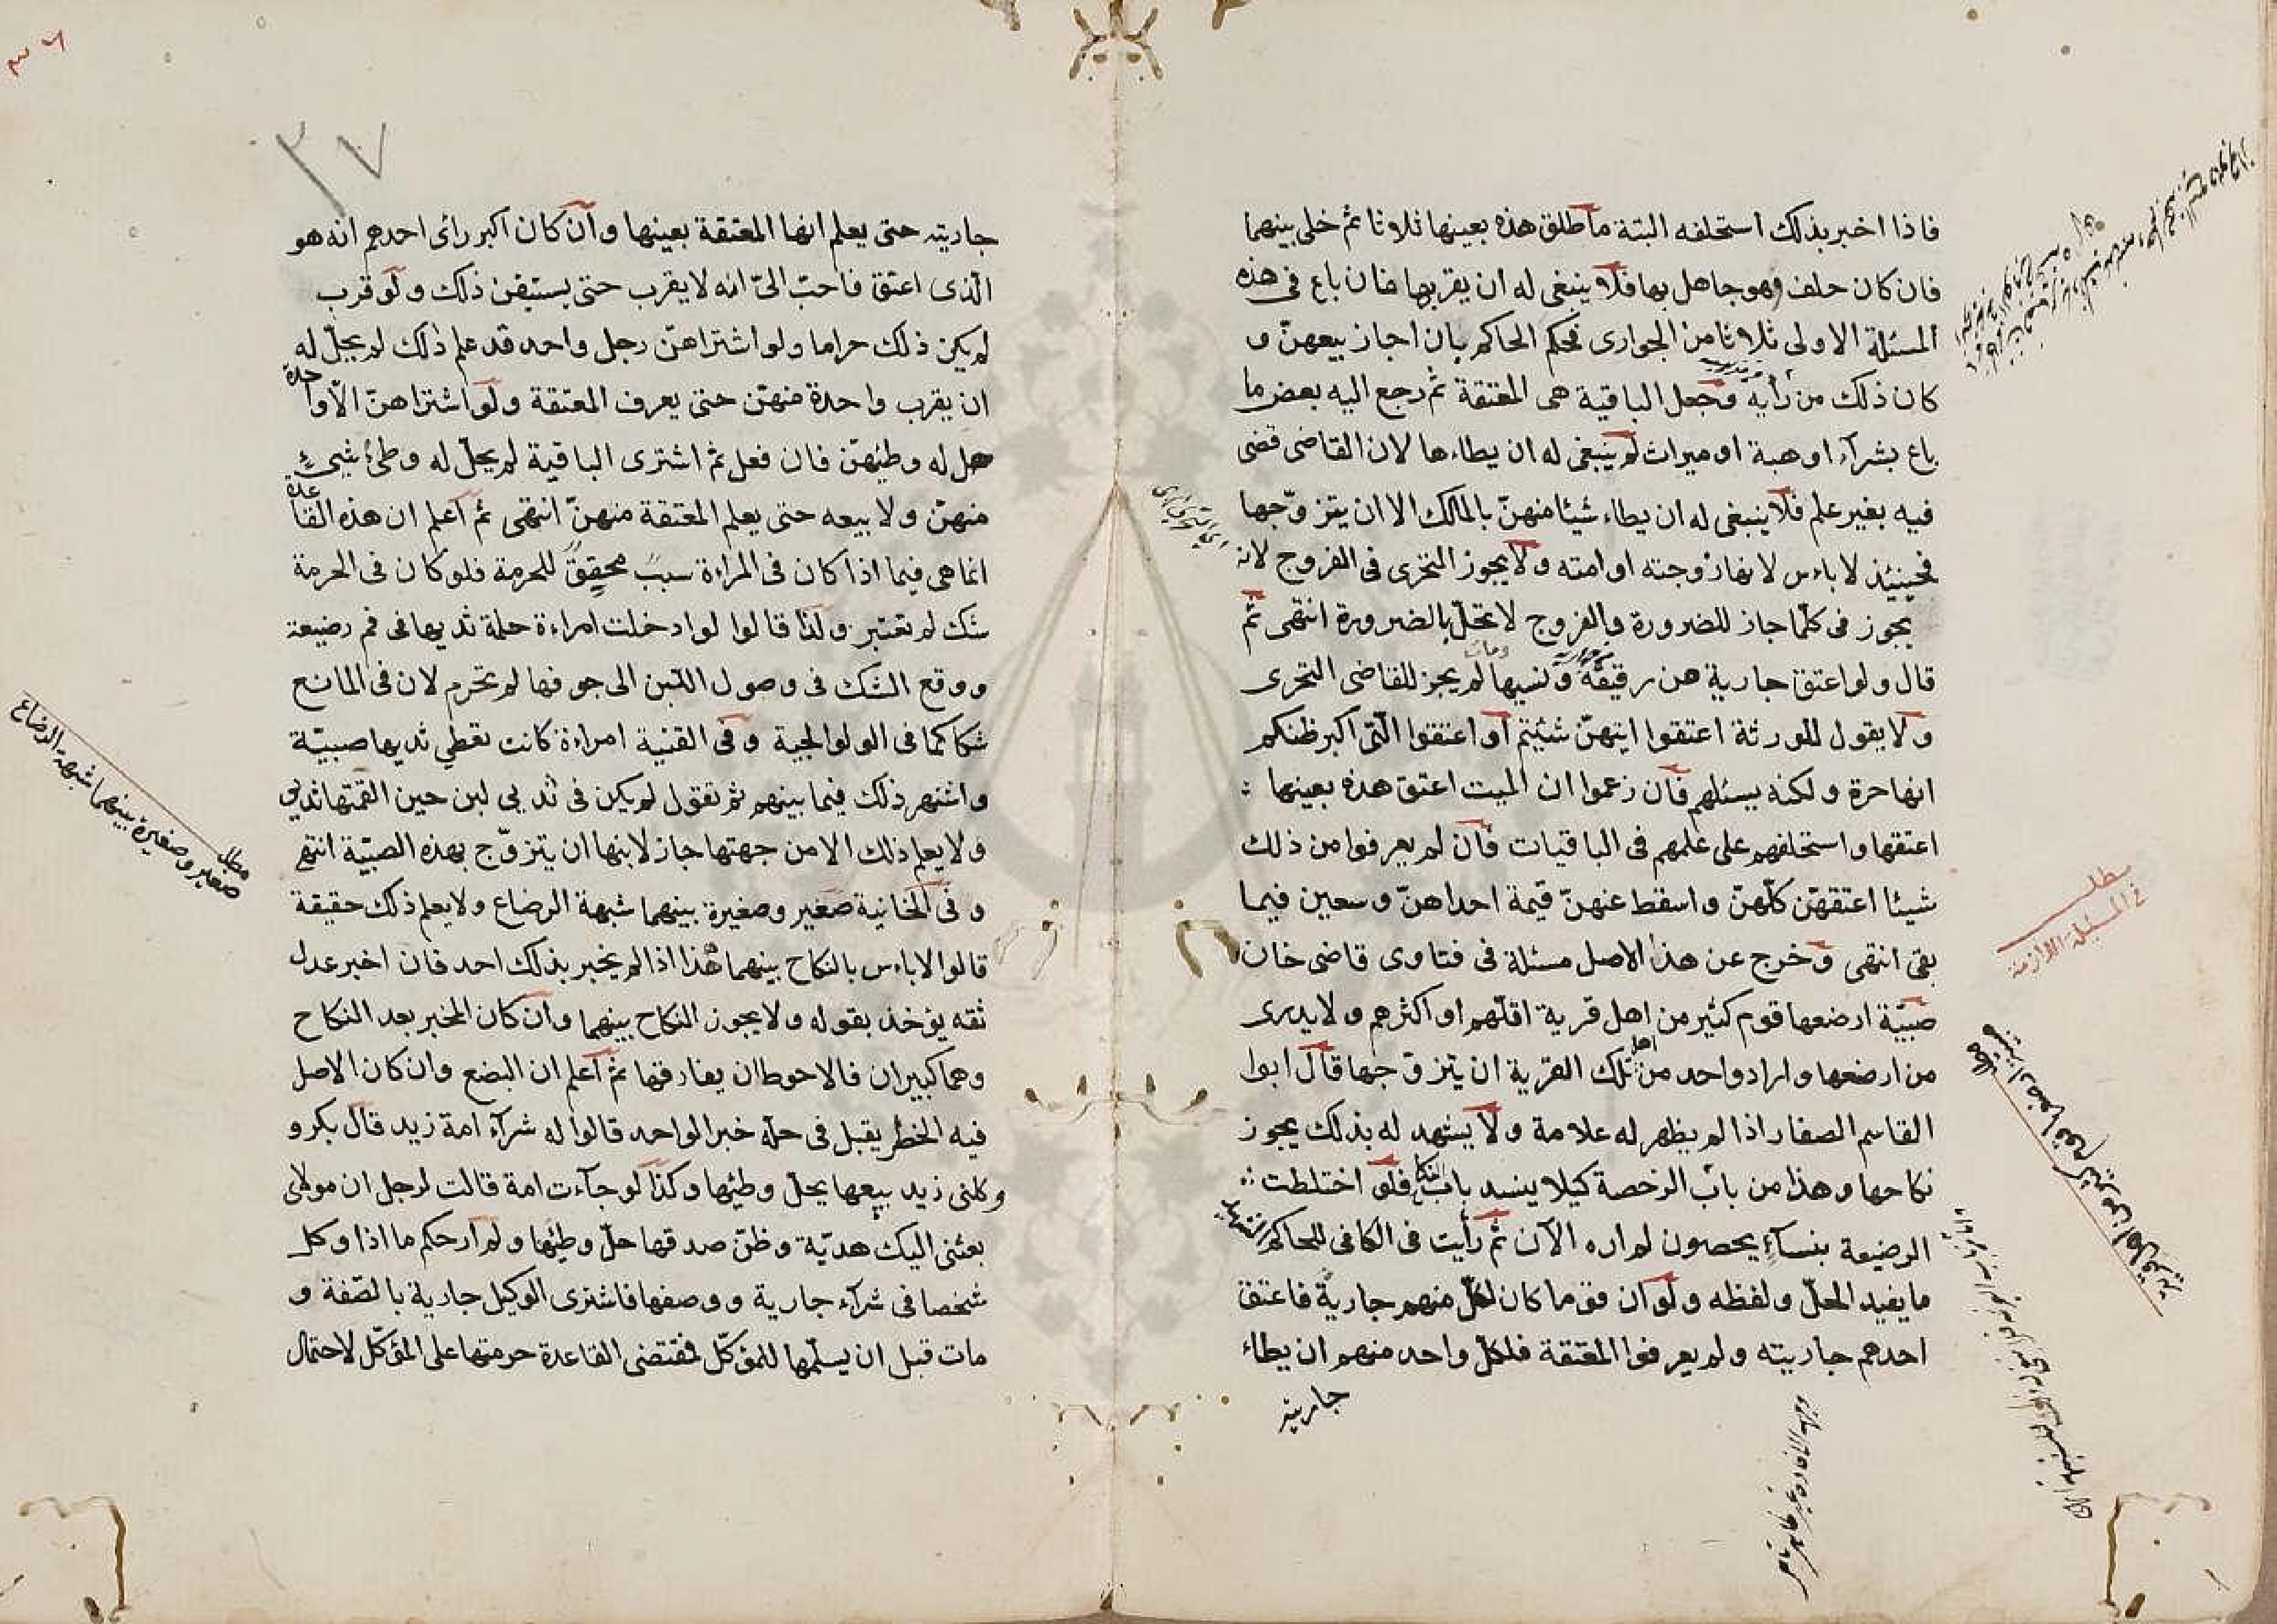 فاذا اخبر بذلك استحلفه البتة ما طلق هذه بعينها ثلاثا ثم خلى بينهما
فان كان حلف وهو جاهل بها فلا ينبغى له ان يقربها فان باع فى هذه
المسئلة الاولى ثلاثا من الجوارى فحكم الحاكم بان اجاز بيعهنّ و
كان ذلك من رأيه وجعل الباقية هى المعتقة ثم رجع اليه بعض ما
باع بشرآء او هبة او ميراث لم ينبغى له ان يطاءها لان القاضى قضى
فيه بغير علم فلا ينبغى له ان يطاء شيئا منهنّ بالملك الا ان يتزوّجها
فحينيئذ لا باءس لانها زوجته او امته ولا يجوز التحرى فى الفروج لانه
يجوز فى كلّما جاز للضرورة والفروج لا تحلّ بالضرورة انتهى ثم
قال ولو اعتق جارية من رقيقه ونسيها ومات لم يجز للقاضى التحرى
ولا يقول للورثة اعتقوا ايتهنّ شئيتم او اعتقوا الّتى اكبر ظنكم
انها حرة ولكنه يسئلهم فان زعموا ان الميت اعتق هذه بعينها
اعتقها واستحلفهم على علمهم فى الباقيات فان لم يعرفوا من ذلك
شيئا اعتقهنّ كلّهنّ واسقط عنهنّ قيمة احداهنّ وسعين فيما
بقى انتهى وخرج عن هذا الاصل مسئلة فى فتاوى قاضى خان
صبيّة ارضعها قوم كثير من اهل قرية اقلّهم او اكثرهم ولا يدرى
من ارضعها واراد واحد من اهل تلك القرية ان يتزوّجها قال ابوا
القاسم الصفار اذا لم يظهر له علامة ولا يشهد له بذلك يجوز
نكاحها وهذا من باب الرخصة كيلا ينسد باب النكاح فلو اختلطت
الرضيعة بنسآء يحصون لم اره الآن ثم رأيت فى الكافى للحاكم الشهيد
ما يفيد الحلّ ولفظه ولو ان قوما كان لكل منهم جارية فاعتق
احدهم جاريته ولم يعرفوا المعتقة فلكلّ واحد منهم ان يطاء
جاريته
مطلب
فى المسئلة اللازمة
مطلب
صبية ارضعها قوم كثير من اهل قرية
جاريته حتى يعلم انها المعتقة بعينها وان كان اكبر رائ احدهم انه هو
الّذى اعتق فاحبّ الىّ انه لا يقرب حتى يستيقن ذلك ولو قرب
لم يكن ذلك حراما ولو اشتراهنّ رجل واحد قد علم ذلك لم يحلّ له
ان يقرب واحدة منهنّ حتى يعرف المعتقة ولو اشتراهنّ الّا واحدة
حل له وطئهنّ فان فعل ثم اشترى الباقية لم يحلّ له وطئ شيئ
منهنّ ولا بيعه حتى يعلم المعتقة منهنّ انتهى ثم اعلم ان هذه القاعدة
انما هى فيما اذا كان فى المراءة سبب محقق للحرمة فلو كان فى الحرمة
شك لم تعتبر ولذا قالوا لو ادخلت امراءة حلمة ثديها فى فم رضيعة
ووقع الشك فى وصول اللبن الى جوفها لم تحرم لان فى المانع
شكا كما فى الولوالجية وفى القنية امراءة كانت تعطى ثديها صبيّة
واشتهر ذلك فيما بينهم ثم تقول لم يكن فى ثديى لبن حين القمتها ثديى
ولا يعلم ذلك الا من جهتها جاز لابنها ان يتزوّج بهذه الصبيّة انتهى
وفى الخانية صغير وصغيرة بينهما شبهة الرضاع ولا يعلم ذلك حقيقة
قالوا لا باءس بالنكاح بينهما هذا اذا لم يخبر بذلك احد فان اخبر عدل
ثقه يؤخذ بقوله ولا يجوز النكاح بينهما وان كان المخبر بعد النكاح
وهما كبيران فالاحوط ان يفارقها ثم اعلم ان البضع وان كان الاصل
فيه الخطر يقبل فى حلّه خبر الواحد قالوا له شرآء امة زيد قال بكر و
كلنى زيد ببيعها يحلّ وطئها وكذا لو جآءت امة قالت لرجل ان مولاى
بعثنى اليك هديّة وظنّ صدقها حلّ وطئها ولم ار حكم ما اذا وكل
شخصا فى شرآء جارية ووصفها فاشترى الوكيل جارية بالصّفة و
مات قبل ان يسلّمها للمؤكّل فمقتضى القاعدة حرمتها على المؤكّل لاحتمال
مطلب
صغير وصغيرة بينهما شبهة الرضاع
٣٧